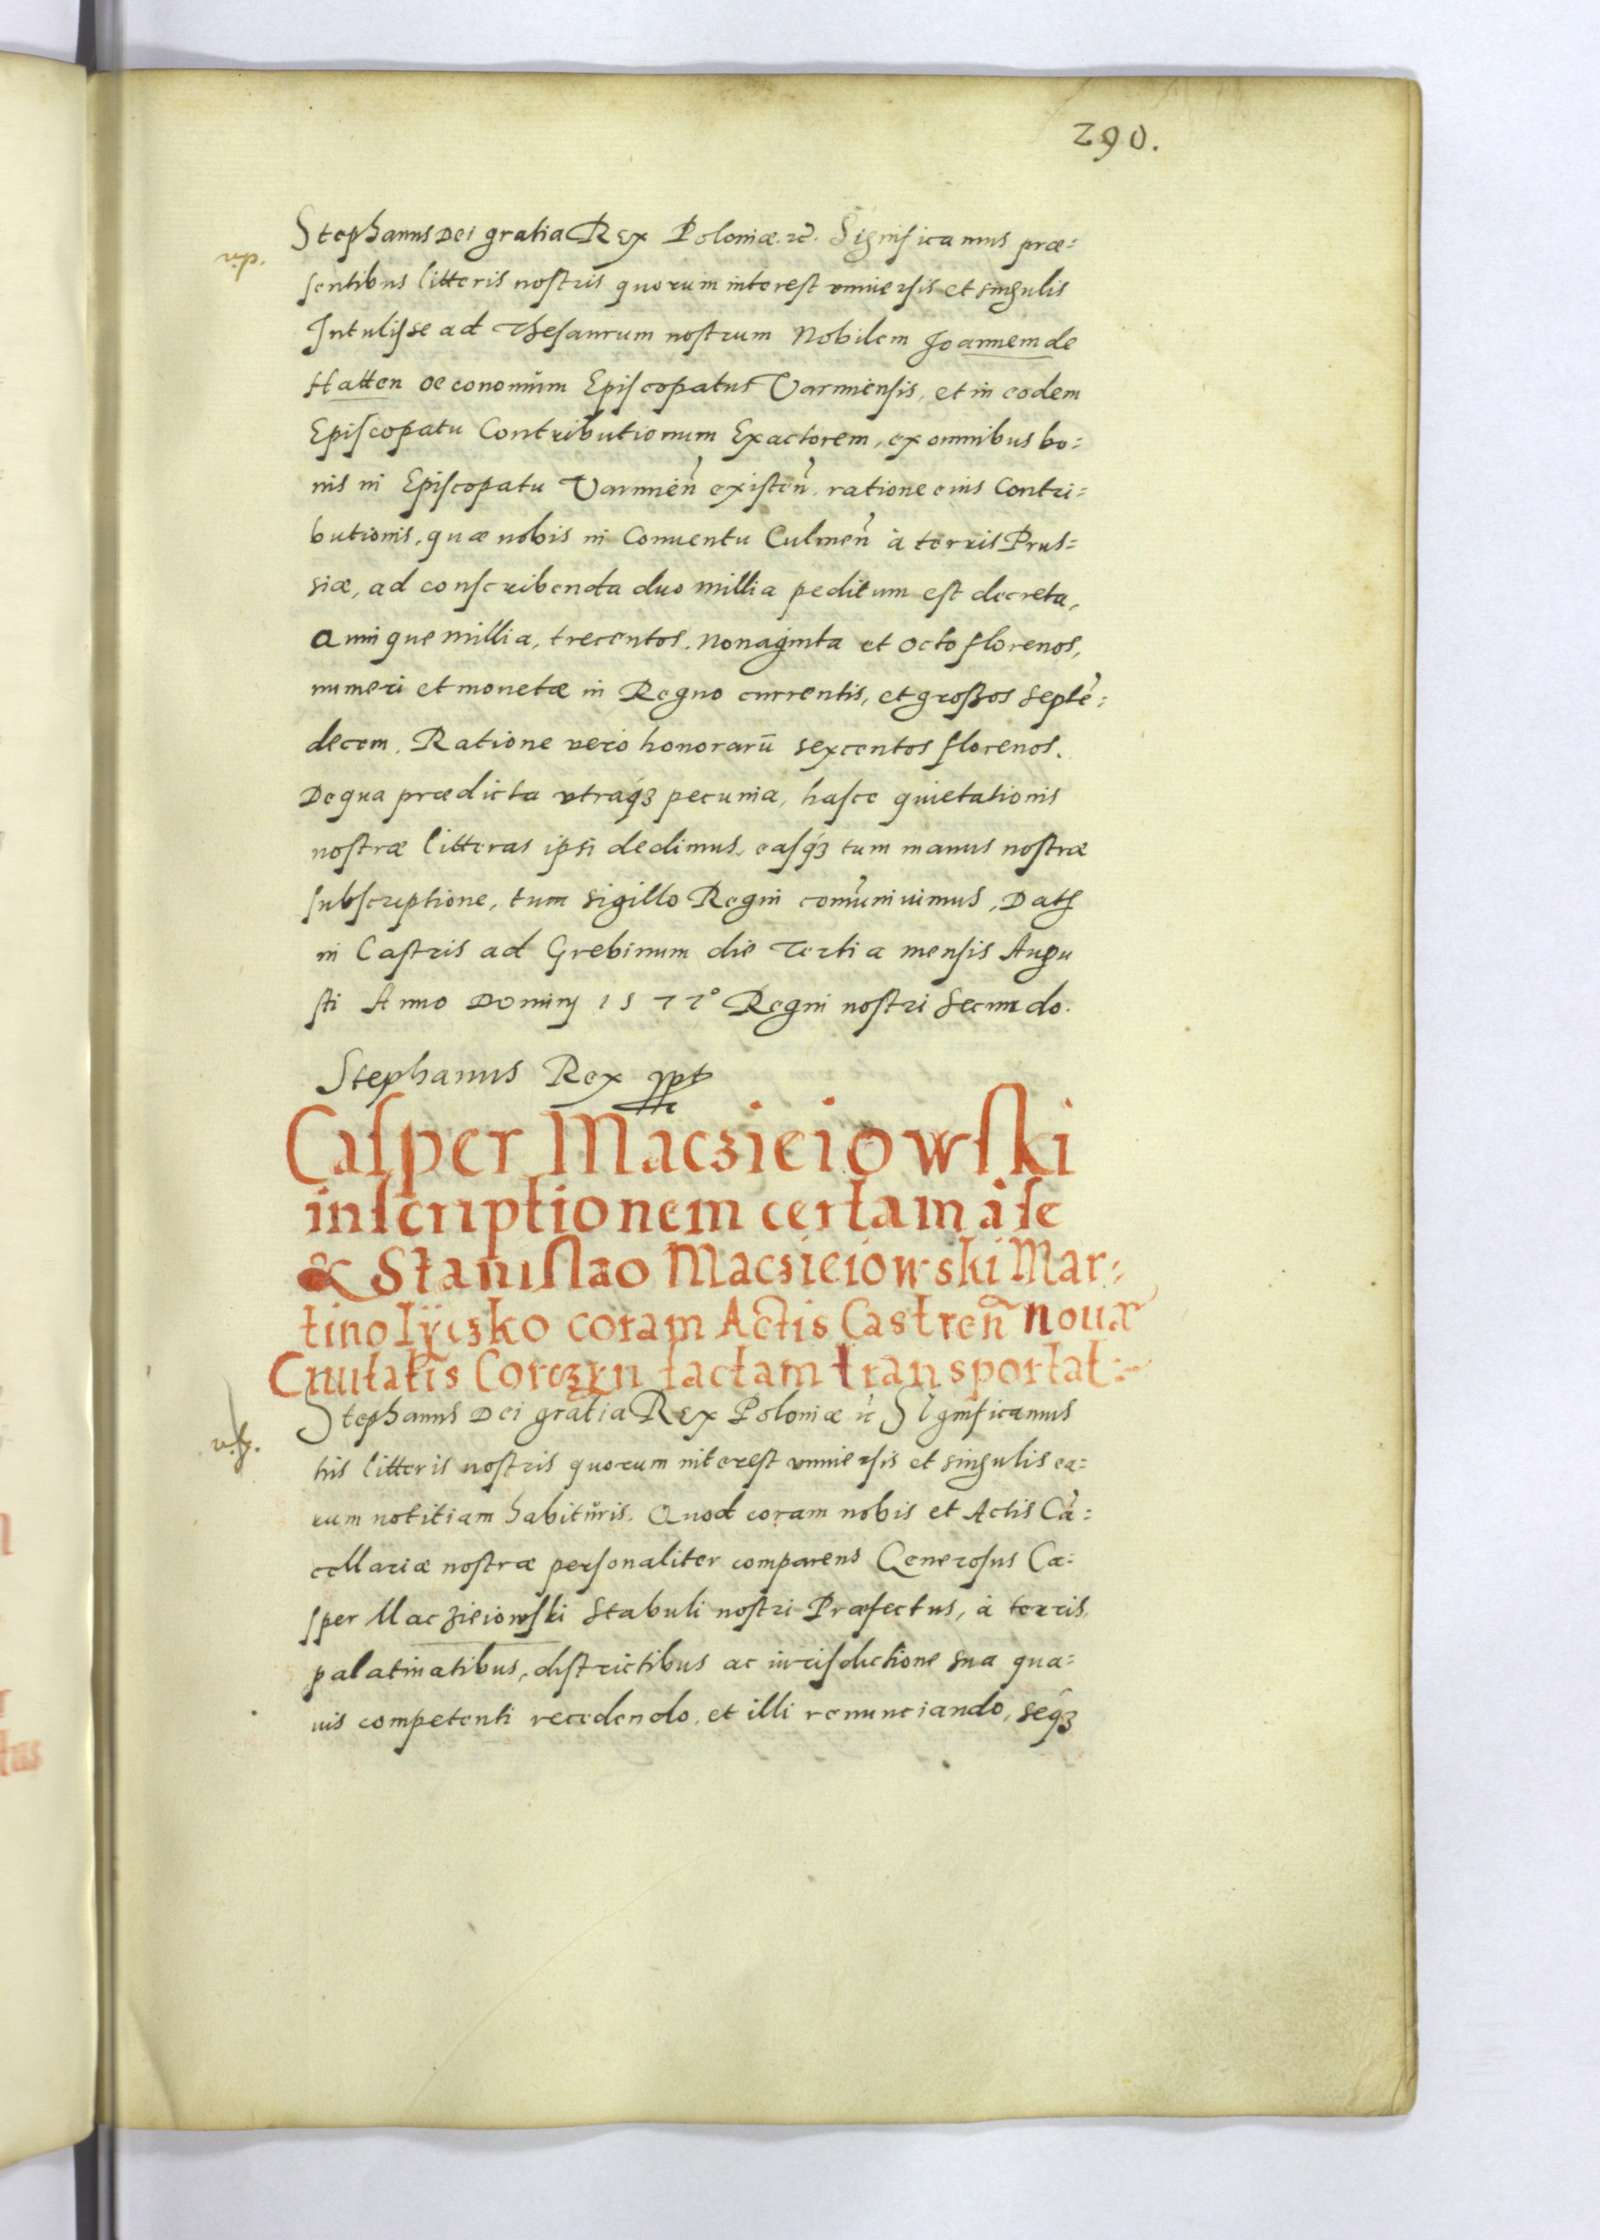 290.
Stephanus Dei gratia Rex Poloniæ. &c. Significamus præ=
sentibus litteris nostris quorum interest vniuersis et singulis
Intulisse ad Thesaurum nostrum Nobilem Joannem de
Hatten oeconomum Episcopatus Varmiensis, et in eodem
Episcopatu Contributionum Exactorem, ex omnibus bo=
nis in Episcopatu Varmien̄ existen̄. ratione eius Contri=
butionis, quæ nobis in Conuentu Culmen̄ à terris Prus=
siæ, ad conscribenda duo millia peditum est decreta,
Quinque millia, trecentos. Nonaginta et Octo florenos,
numeri et monetæ in Regno currentis, et großos septē=
decem. Ratione vero honorarū sexcentos florenos.
De qua prædicta vtraq́ꝫ pecunia, hasce quietationis
nostræ litteras ipsi dedimus, easq́ꝫ tum manus nostræ
subscriptione, tum sigillo Regni com̄uniuimus, Datꝭ
in Castris ad Grebinum die Tertia mensis Augu
sti Anno Dominj 1577° Regni nostri Secundo.
Stephanus Rex sspt
Casper Maczieiowski
inscriptionem certam à se
& Stanislao Macsieiowski Mar=
tino Iÿczko coram Actis Castren̄ nouæ
Ciuitatis Corczyn factam transportat:~
Stephanus Dei gratia Rex Poloniæ &c Significamus
his litteris nostris quorum interest vniuersis et singulis ea=
rum notitiam habituris. Quod coram nobis et Actis Cā=
cellariæ nostræ personaliter comparens Generosus Ca=
sper Maczieiowski Stabuli nostri Præfectus, à terris
palatinatibus, districtibus ac iurisdictione sua qua=
uis competenti recedendo, et illi renunciando, seq́ꝫ